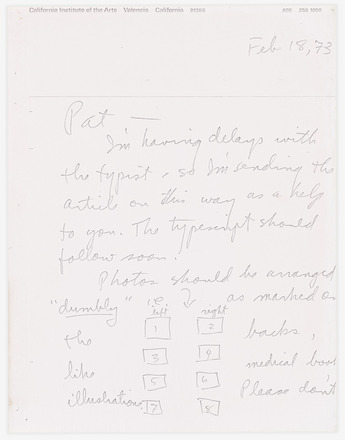 California Institute of the Arts Valencia California 91355 805 255-1050
Feb 18, 73
Pat —
I'm having delays with
the typist - so I'm sending the
article on this way as a help
to you. The typescript should
follow soon.
Photos should be arranged
"dumbly" i.e. as marked on
left right
the 1 2 backs,
3 4
like 5 6 medical book
illustrations. 7 8 Please don't